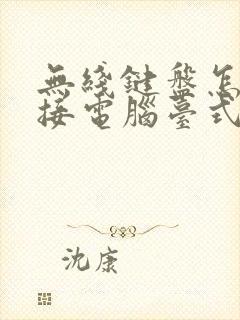 無綫鍵盤怎
接電腦臺式
沈康